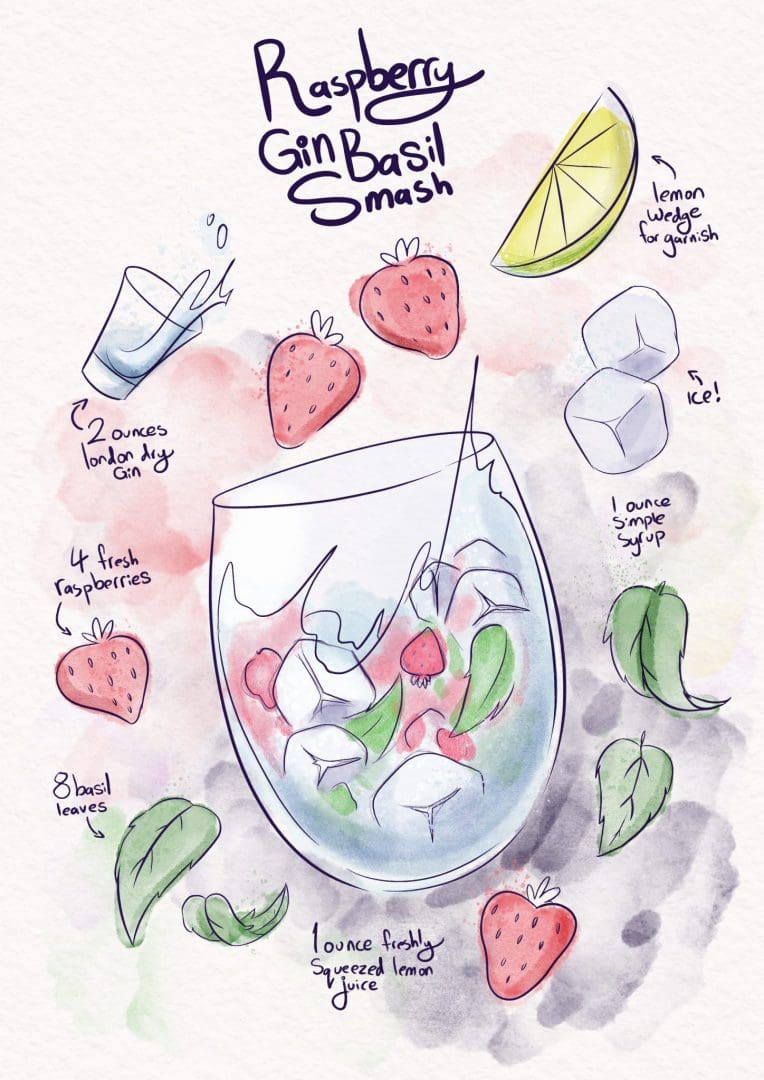 Raspberry
Gin Basil
Smash
lemon
wedge
for garnish
Ice!
2 ounces
london dry
Gin
1 ounce
simple
syrup
4 fresh
raspberries
8 basil
leaves
1 ounce freshly
squeezed lemon
juice